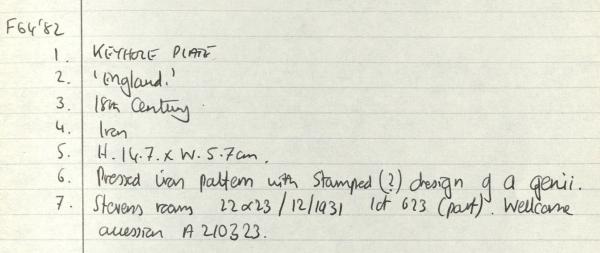 F64'82
1. KEYHOLE PLATE
2. 'England.'
3. 18th Century.
4. Iron
5. H. 14.7. x W. 5.7cm.
6. Pressed iron pattern with stamped (?) design of a genii.
7. Stevens rooms 22&23/12/1931 lot 623 (part). Wellcome
accession A 210323.